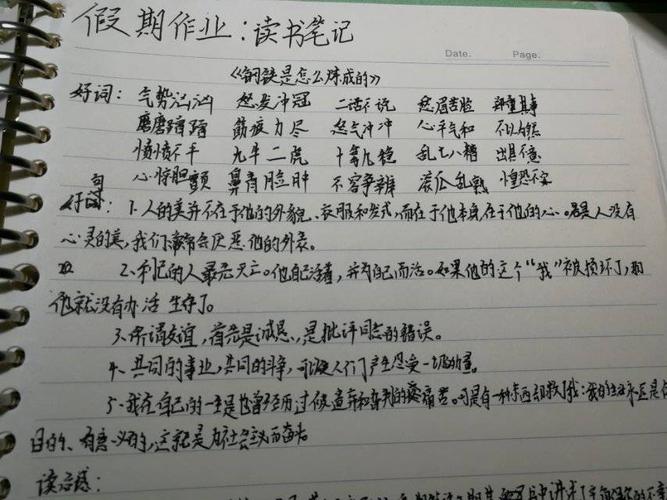 假期作业：读书笔记
Date. Page.
《钢铁是怎么炼成的》
好词： 气势汹汹 怒发冲冠 二话不说 愁眉苦脸 郑重其事
磨磨蹭蹭 筋疲力尽 怒气冲冲 心平气和 不以为然
愤愤不平 九牛二虎 十拿九稳 乱七八糟 出其不意
心惊胆颤 鼻青脸肿 不容争辨 滚瓜乱熟 惶恐不安
好句： 1.人的美并不在于他的外貌、衣服和发式，而在于他本身,在于他的心。若是人没有
心灵的美,我们常常会厌恶他的外表。
2.利己的人最先灭亡。他自己活着，并为自己而活。如果他的这个“我”被损坏了，那
他就没有办法 生存了。
3.所谓友谊，首先是诚恳，是批评同志的错误。
4.共同的事业，共同的斗争，可以使人们产生忍受一切的力量。
5.我在自己的一生里也曾经历过被遗弃和背叛的痛苦。可是有一种东西却救了我：我的生活永远是有
目的、有意义的，这就是为社会主义而奋斗
读后感：